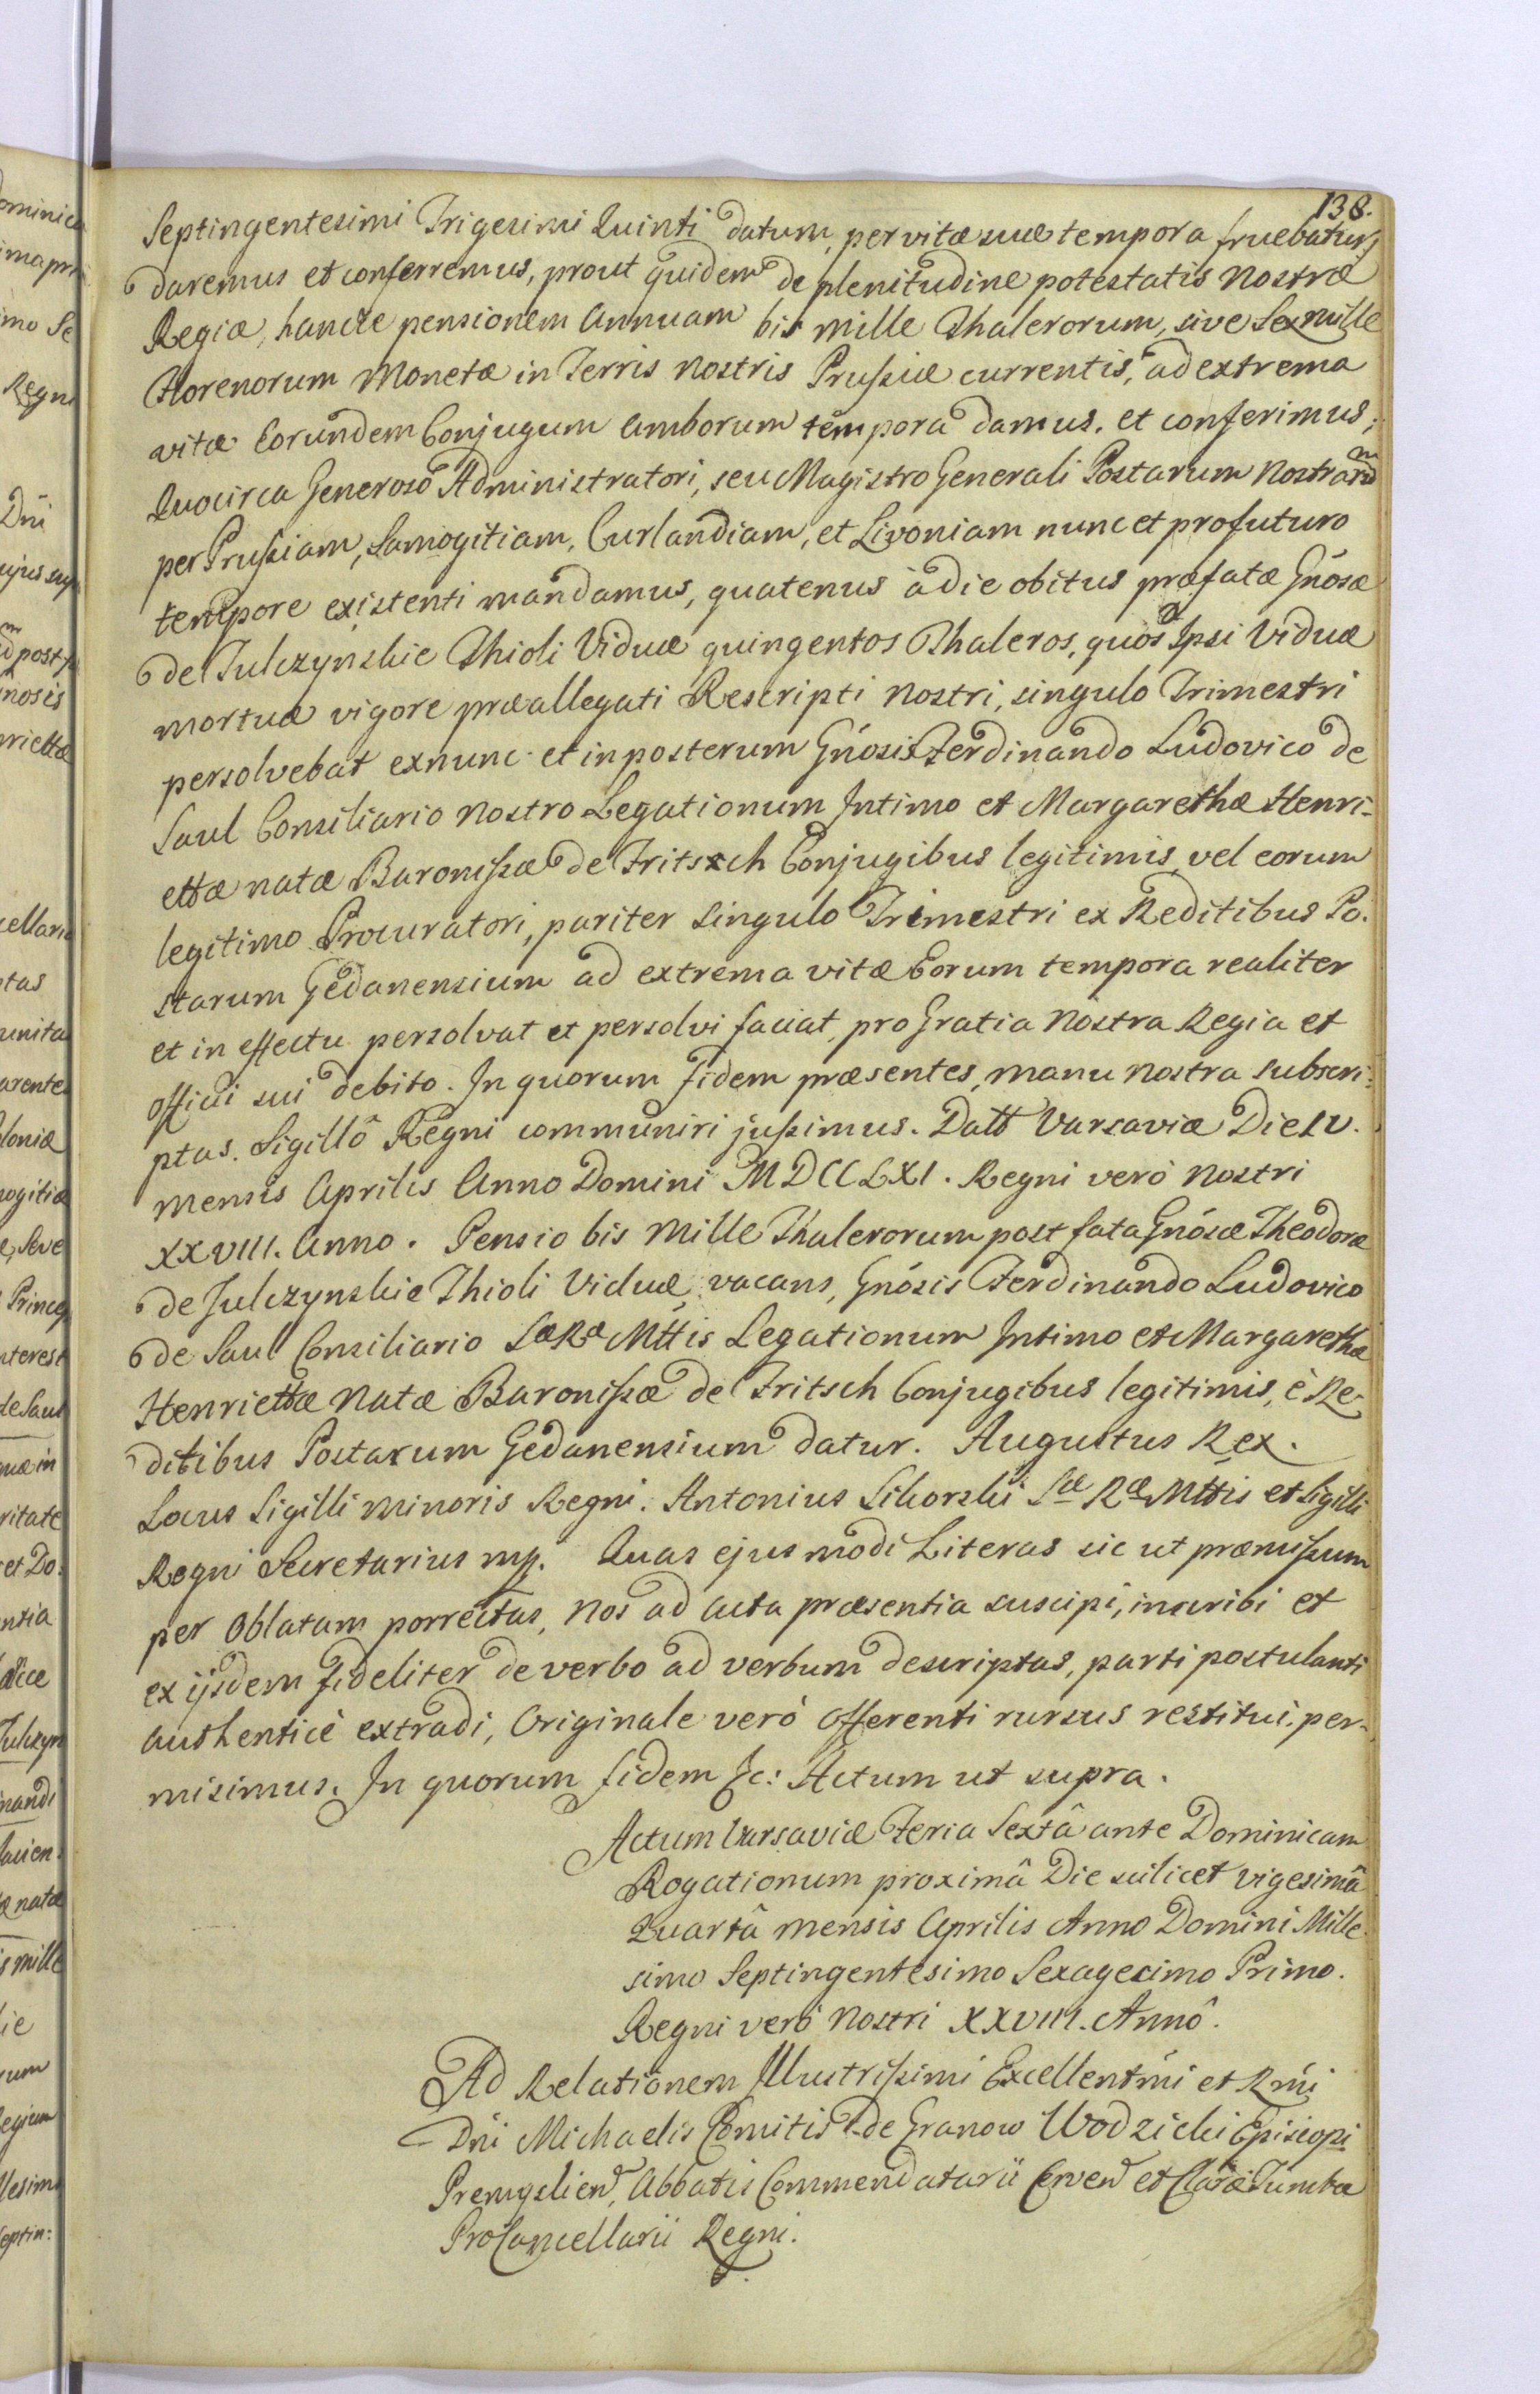 138.
Septingentesimi Trigesimi Quinti datum, per vitæ suæ tempora fruebatur,
daremus et conferremus, prout quidem de plenitudine potestatis nostræ
Regiæ, hancce pensionem Annuam bis mille Thalerorum, sive Sex mille
Florenorum Monetæ in Terris nostris Prussiæ currentis, ad extrema
vitæ Eorundem Conjugum Amborum tempora damus. et conferimus;
Quocirca Generoso Administratori, seu Magistro Generali Postarum nostrarum
per Prussiam, Samogitiam, Curlandiam, et Livoniam nunc et pro futuro
tempore existenti mandamus, quatenus à die obitus præfatæ Gnósæ
de Julczynskie Thioli Viduæ quingentos Thaleros, quos Ipsi Viduæ
mortuæ vigore præallegati Rescripti nostri, singulo Trimestri
persolvebat exnunc et inposterum Gnósis Ferdinando Ludovico de
Saul Consiliario nostro Legationum Intimo et Margarethæ Henri-
ettæ natæ Baronissæ de Fritsch Conjugibus legitimis, vel eorum
legitimo Procuratori, pariter singulo Trimestri ex Reditibus Po-
starum Gedanensium ad extrema vitæ Eorum tempora realiter
et in effectu persolvat et persolvi faciat, pro Gratia nostra Regia et
Officii sui debito. In quorum Fidem præsentes, manu nostra subscri-
ptas. Sigillô Regni communiri jussimus. Datt Varsaviæ Die IV.
mensis Aprilis Anno Domini MDCCLXI. Regni verò nostri
XXVIII. Anno. Pensio bis mille Thalerorum post fata Gnósæ Theodoræ
de Julczynskie Thioli Viduæ, vacans, Gnósis Ferdinando Ludovico
de Saul Consiliario Sæ Ræ Mttis Legationum Intimo et Margarethæ
Henriettæ Natæ Baronissæ de Fritsch Conjugibus legitimis, è Re-
ditibus Postarum Gedanensium datur. Augustus Rex.
Locus Sigilli minoris Regni. Antonius Sikorski Sæ Ræ Mttis et Sigilli
Regni Secretarius mp. Quas ejusmodi Literas sic ut præmissum
per Oblatam porrectas, nos ad acta præsentia suscipi, inscribi et
ex ijsdem fideliter de verbo ad verbum descriptas, parti postulanti
authenticè extradi, Originale verò Offerenti rursus restitui. per-
misimus. In quorum fidem &c: Actum ut supra.
Actum Varsaviæ Feria Sextâ ante Dominicam
Rogationum proximâ Die scilicet vigesimâ
Quartâ mensis Aprilis Anno Domini Mille
simo Septingentesimo Sexagesimo Primo.
Regni verò nostri XXVIII. Annô.
Ad Relationem Illustrissimi Excellentmi et Rmi
Dni Michaelis Comitis de Granow Wodzicki Episcopi
Premyslien, Abbatis Commendatarii et Claræ Tumbæ
ProCancellarii Regni.